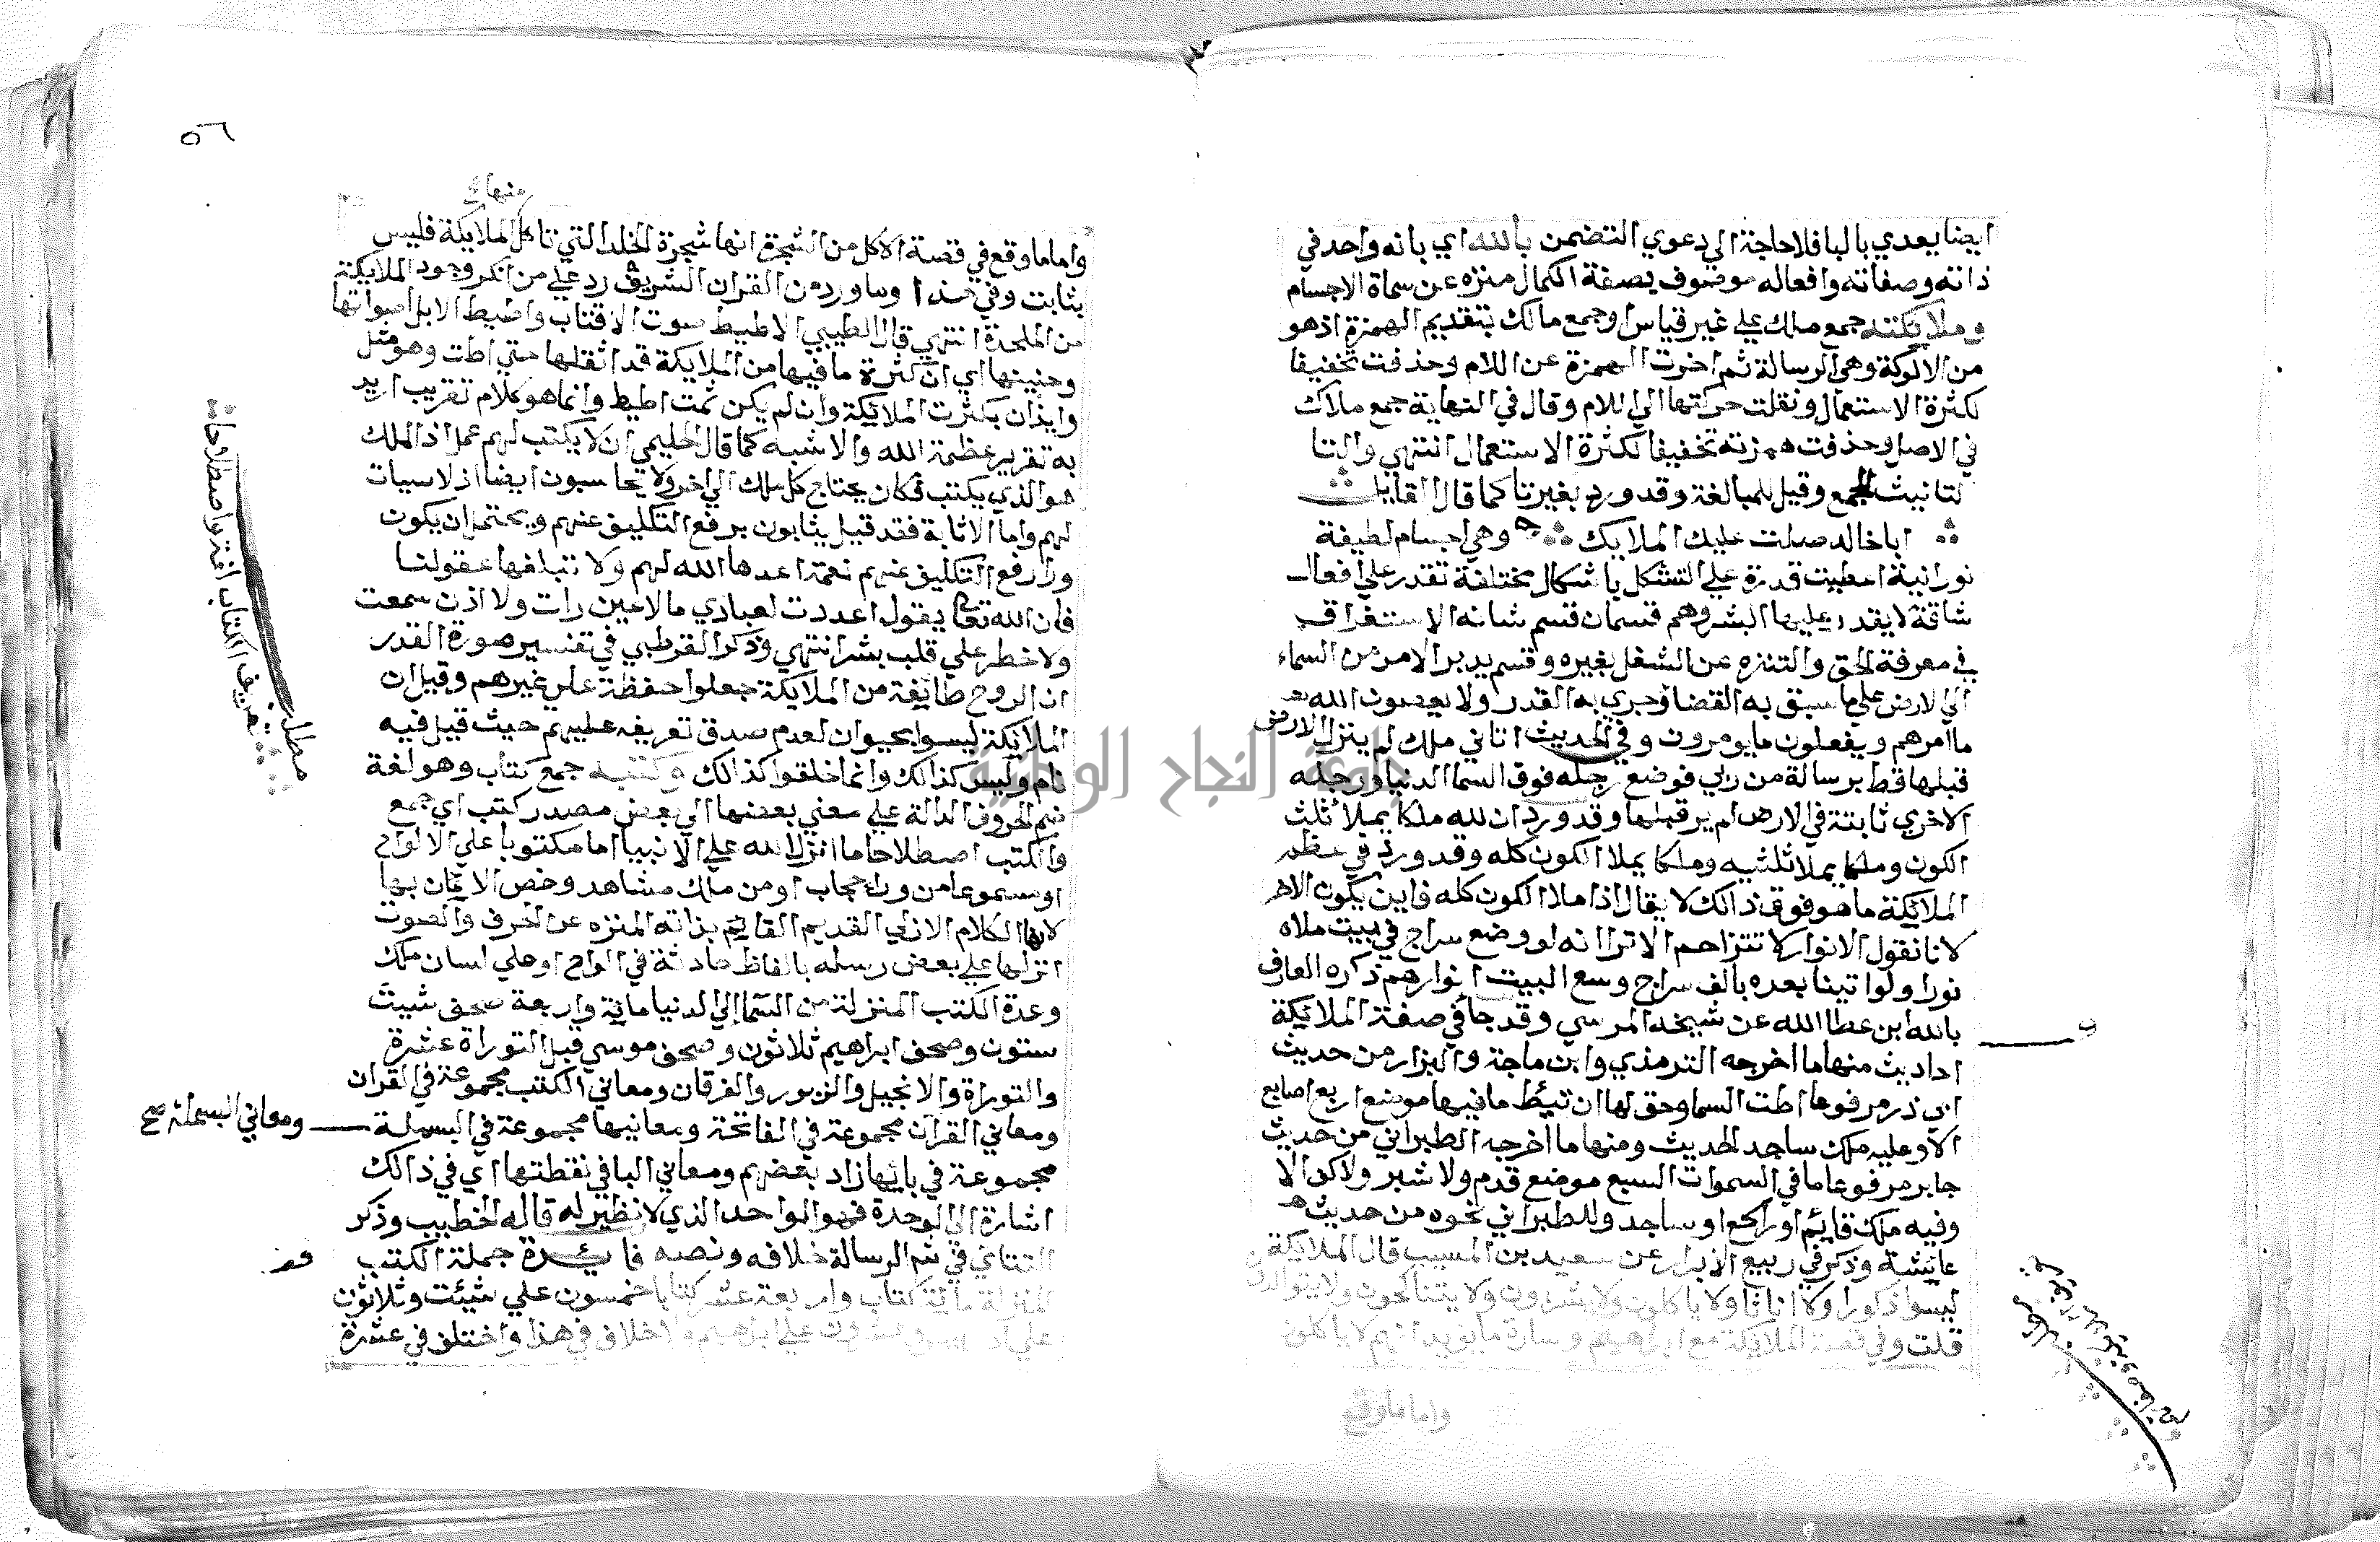 ايضا يعدي بالبا فلا حاجة الي دعوي التضمن بالله اي بانه واحد في
ذاته وصفاته وافعاله موصوف بصفة الكمال منزه عن سماة الاجسام
وملايكته جمع ملك علي غير قياس او جمع مالك بتقديم الهمزة اذ هو
من الالوكة وهي الرسالة ثم اخرت الهمزة عن اللام وحذفت تخفيفا
لكثرة الاستعمال ونقلت حركتها الي اللام وقال في النهاية جمع ملاك
في الاصل وحذفت همزته تخفيفا لكثرة الاستعمال انتهي والتا
لتانيث الجمع وقيل للمبالغة وقد ورد بغير تا كما قال القايل
اباخالد صلت عليك الملايك وهي اجسام لطيفة
نورانية اعطيت قدرة علي التشكل باشكال مختلفة تقدر علي افعال
شاقة لا يقدر عليها البشر وهم قسمان قسم شانه الاستغراق
في معرفة الحق والتنزه عن الشغل بغيره وقسم يدبر الامر من السماء
الي الارض علي ما سبق به القضا وجري به القدر ولا يعصون الله
ما امرهم ويفعلون ما يومرون وفي الحديث اتاني ملك لم ينزل الارض
قبلها قط برسالة من ربي فوضع رجله فوق السما الدنيا ورجله
الاخري ثابتة في الارض لم يرفعها وقد ورد ان لله ملكا يملا ثلث
الكون وملكا يملا ثلثيه وملكا يملا الكون كله وقد ورد في عظم
الملائكة ما هو فوق ذالك لا يقال اذا ملا الكون كله فاين يكون الاخر
لانا نقول الانوار لا تتزاحم الا ترا انه لو وضع سراج في بيت ملاه
نورا ولو اتينا بعده بالف سراج وسع البيت انوارهم ذكره العارف
بالله ابن عطا الله عن شيخه المرسي وقد جا في صفة الملائكة
احاديث منها ما اخرجه الترمذي وابن ماجة والبزار من حديث
ابي ذر مرفوعا اطت السما وحق لها ان تيئط ما فيها موضع اربع اصابع
الا وعليه ملك ساجد الحديث ومنها ما اخرجه الطبراني من حديث
جابر مرفوعا ما في السموات السبع موضع قدم ولا شبر ولا كف الا
وفيه ملك قايم او راكع او ساجد وللطبراني نحوه من حديث
عايشة وذكر في ربيع الابرار عن سعيد بن المسيب قال الملايكة
ليسوا ذكورا ولا اناثا ولا ياكلون ولا يشربون ولا يتناكحون ولا يتوالدون
قلت وفي قصة الملايكة مع ابراهيم وسارة ما يويد انهم لا ياكلون
واما ما وقع
٥٦
منهاج
واما ما وقع في قصة الاكل من الشجرة انها شجرة الخلد التي تاكل الملايكة فليس
بثابت وفي هذا وما ورد من القران الشريف رد علي من انكر وجود الملايكة
من الملحدة انتهي قال الطيبي الاطيط صوت الاقتاب واطيط الابل اصواتها
وحنينها اي ان كثرة ما فيها من الملايكة قد اثقلها حتي اطت وهو مثل
وايذان بكثرت الملائكة وان لم يكن ثمت اطيط وانما هو كلام تقريب اريد
به تقرير عظمة الله والاشبه كما قال الحليمي ان لا يكتب لهم عمل اذ الملك
هو الذي يكتب فكان يحتاج كل ملك الي اخر ولا يحاسبون ايضا اذ لا سيات
لهم واما الاثابة فقد قيل يثابون برفع التكليف عنهم ويحتمل ان يكون
ورا رفع التكليف عنهم نعمة اعدها الله لهم ولا تبلغها عقولنا
فان الله تعا يقول اعددت لعبادي ما لا عين رات ولا اذن سمعت
ولا خطر علي قلب بشر انتهي وذكر القرطبي في تفسير صورة القدر
ان الروح طايفة من الملايكة جعلوا حفظة علي غيرهم وقيل ان
الملائكة ليسوا بحيوان لعدم صدق تعريفه عليهم حيث قيل فيه
نام وليس كذالك وانما خلقوا كذالك وكتبه جمع كتاب وهو لغة
ضم الحروف الدالة علي معني بعضها الي بعض مصدر كتب اي جمع
والكتب اصطلاحا ما انزل الله علي الانبيا اما مكتوبا علي الالواح
او مسموعا من وراء حجاب او من ملك مشاهد وخص الايمان بها
لانها الكلام الازلي القديم القايم بذاته المنزه عن الحرف والصوت
انزلها علي بعض رسله بالفاظ حادثة في الواح او علي لسان ملك
وعدة الكتب المنزلة من السما الي الدنيا ماية واربعة صحف شيث
ستون وصحف ابراهيم ثلاثون وصحف موسي قبل التوراة عشرة
والتوراة والانجيل والزبور والفرقان ومعاني الكتب مجموعة في القران
ومعاني القرآن مجموعة في الفاتحة ومعانيها مجموعة في البسملة
ومعاني البسملة صح
مجموعة في بائها زاد بعضهم ومعاني البا في نقطتها اي في ذالك
اشارة الي الوحدة فهو الواحد الذي لا نظير له قاله الخطيب وذكر
التتائي في شم الرسالة خلافه ونصه فايدة جملة الكتب
المنزلة ماية كتاب واربعة عشر كتابا خمسون علي شيئت وثلاثون
علي ادريس وعشرون علي ابراهيم ولا خلاف في هذا واختلف في عشرة
مطلب
تعريف الكتاب لغة واصطلاحا
جامعة النجاح الوطنية